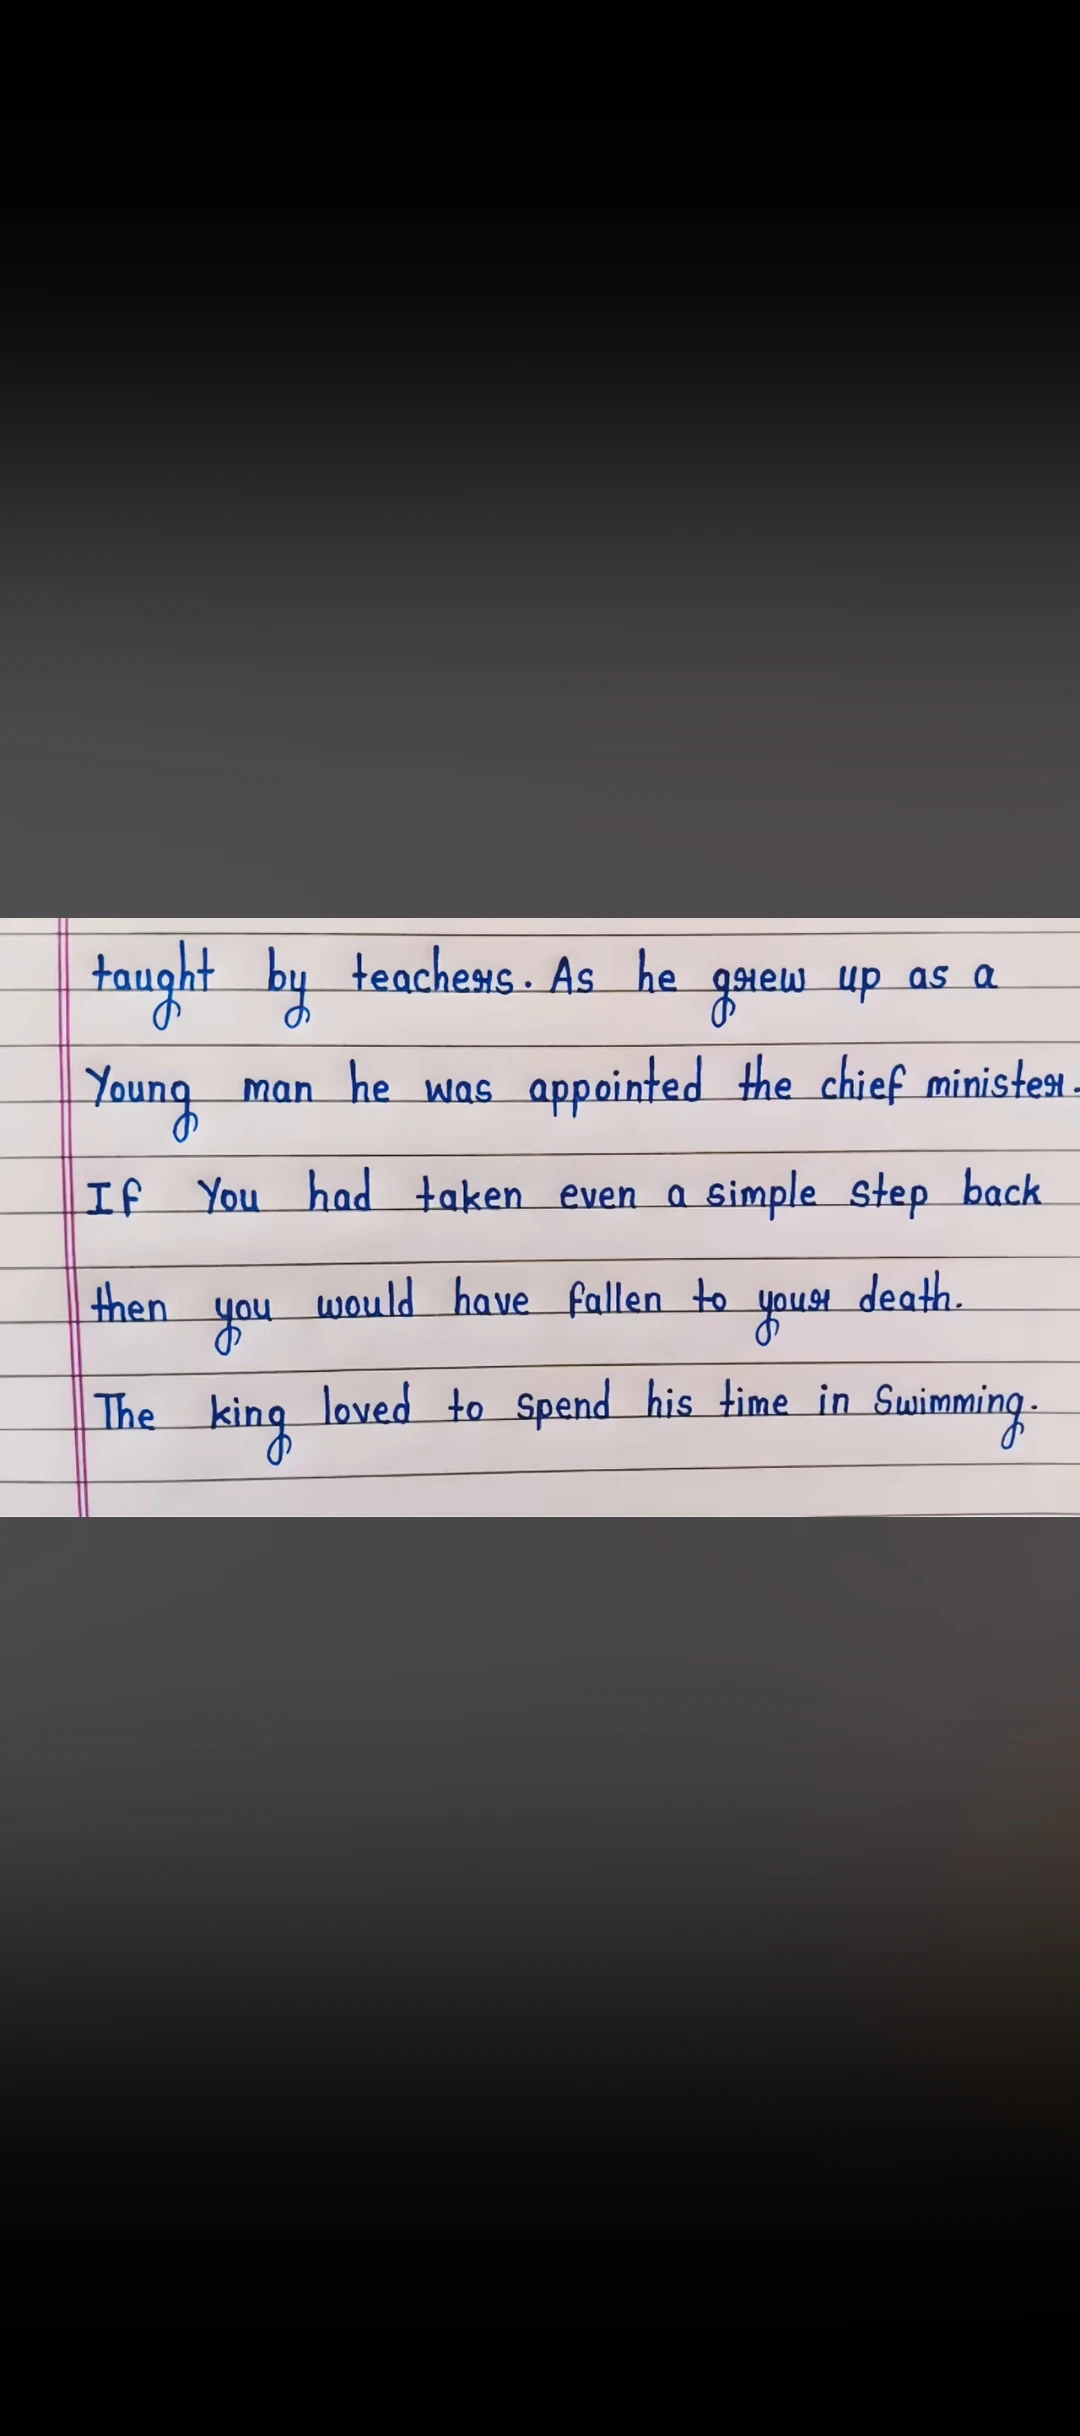 taught by teachers. As he grew up as a
Young man he was appointed the chief minister.
If You had taken even a simple step back
then you would have fallen to your death.
The king loved to spend his time in Swimming.